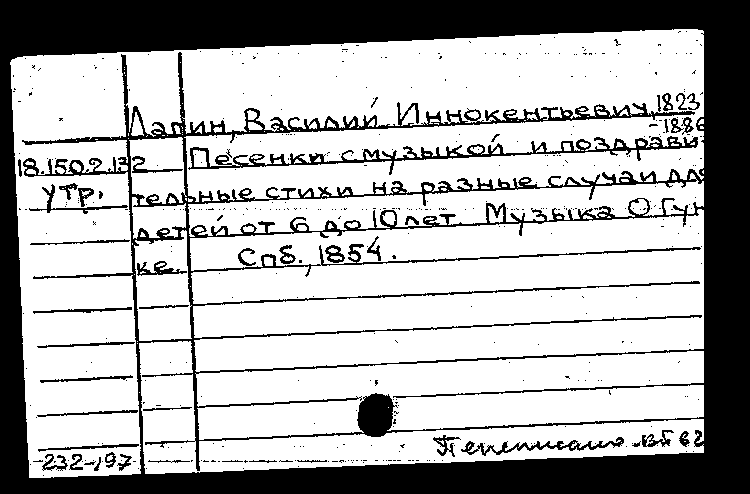 Лапин, Василий Иннокентьевич, 1823
-1886
18.150.2.132 Песенки с музыкой и поздрави-
утр. тельные стихи на разные случаи для
детей от 6 до 10 лет. Музыка О Гун
ке. Спб., 1854.
Переписано
232-197